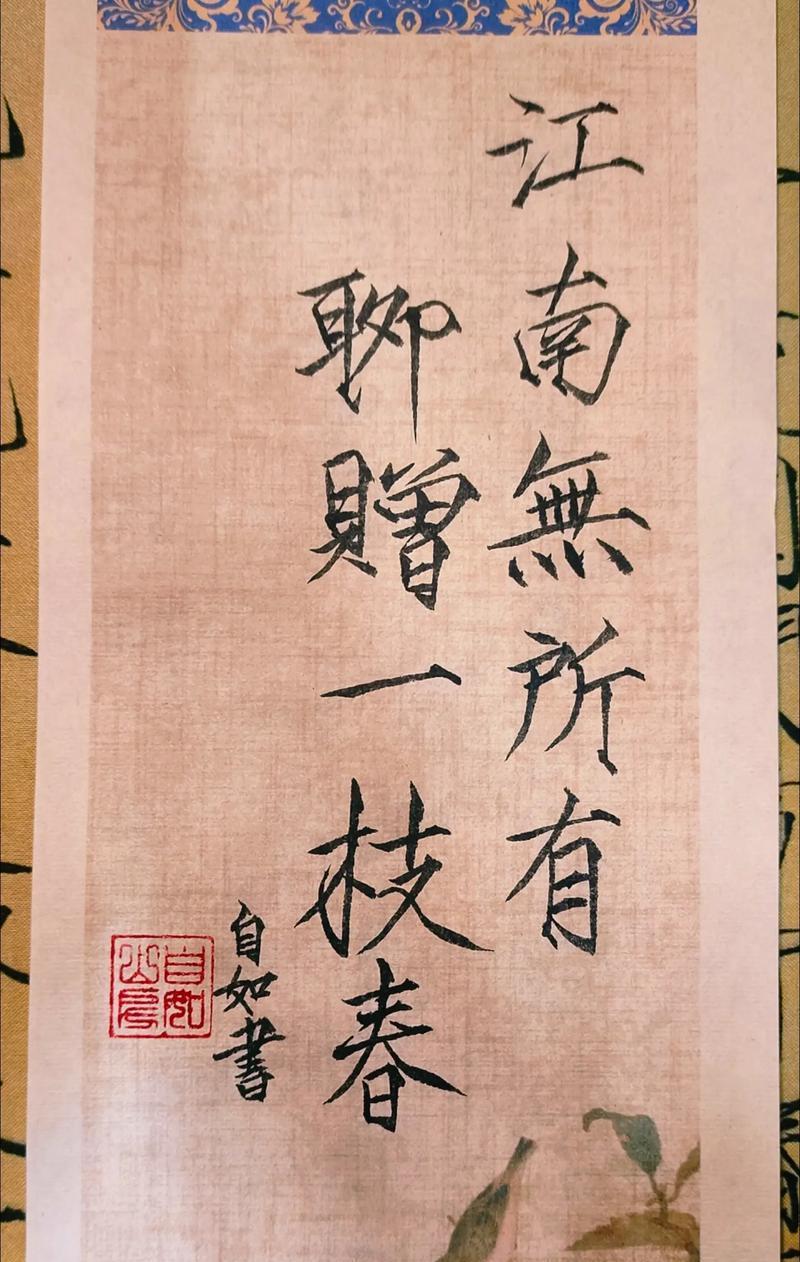 江南無所有
聊贈一枝春
自如書
自如山房